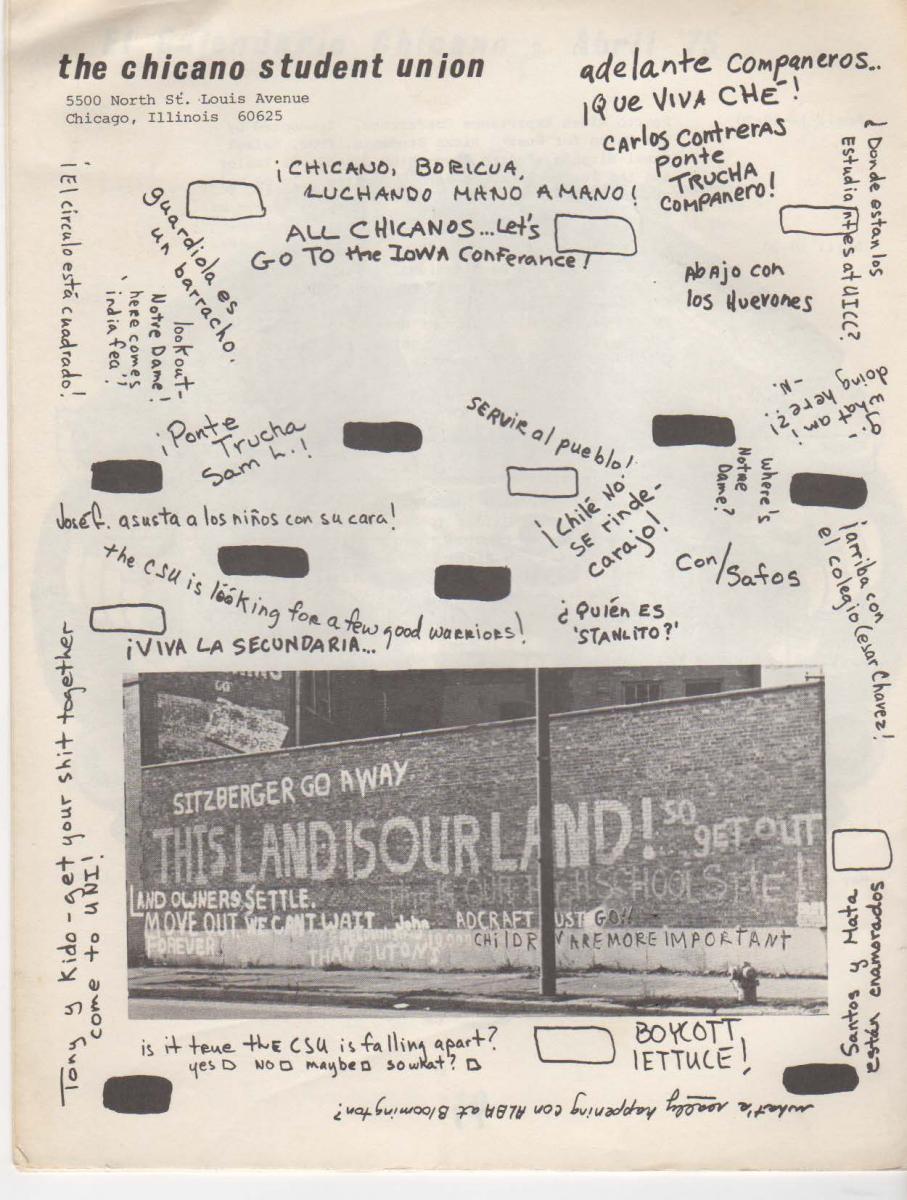 the chicano student union
5500 North St. Louis Avenue
Chicago, Illinois 60625
adelante compañeros..
¡QUE VIVA CHE!
CARLOS CONTRERAS
PONTE
TRUCHA
COMPANERO!
¿Donde estan los
Estudiantes at UICC?
¡CHICANO, BORICUA,
LUCHANDO MANO A MANO!
ALL CHICANOS...Let's
GO TO the IOWA Conferance!
¡El circulo está cuadrado!
guardiola es
un barracho.
lookout-
Notre Dame!
here comes
india fea!
AbAjo con
los Huevones
what am i
doing here?!
-N.
¡Ponte
Trucha
Sam L.!
SERVIR al pueblo!
where's
Notre
Dame?
José G. asusta a los niños con su cara!
¡Chilé NO
SE rinde-
carajo!
Con/Safos
¡arriba con
el colegio Cesar Chavez!
the CSU is looking for a few good warriors!
¿QUIÉN ES
'STANLITO?'
¡VIVA LA SECUNDARIA...
Tony y Kido-get your shit together
come to UNI!
SITZBERGER GO AWAY.
THIS LAND IS OUR LAND! SO GET OUT
THIS IS OUR HIGH SCHOOL SITE!
LAND OWNERS SETTLE.
MOVE OUT WE CANT WAIT
FOREVER!
ADCRAFT UST GO!!
CHILDR N ARE MORE IMPORTANT
THAN BUTONS
Santos y Mata
están enamorados
is it true the CSU is falling apart?
yes □ NO □ maybe □ so what? □
BOYCOTT
LETTUCE!
what's really happening con ALBA at Bloomington?